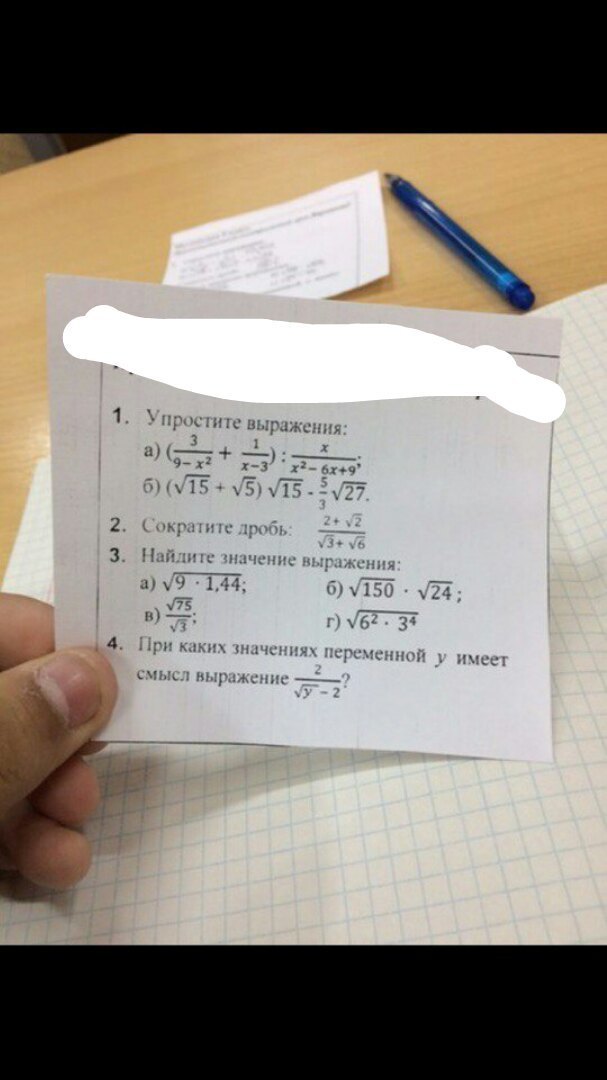 1. Упростите выражения:
а) (3/(9 – x²) + 1/(x–3)) : x/(x² – 6x+9);
б) (√15 + √5) √15 - 5/3 √27.
2. Сократите дробь: (2+ √2)/(√3+ √6)
3. Найдите значение выражения:
а) √(9 · 1,44); б) √150 · √24 ;
в) √75/√3; г) √(6² · 3⁴)
4. При каких значениях переменной y имеет
смысл выражение 2/(√y – 2)?